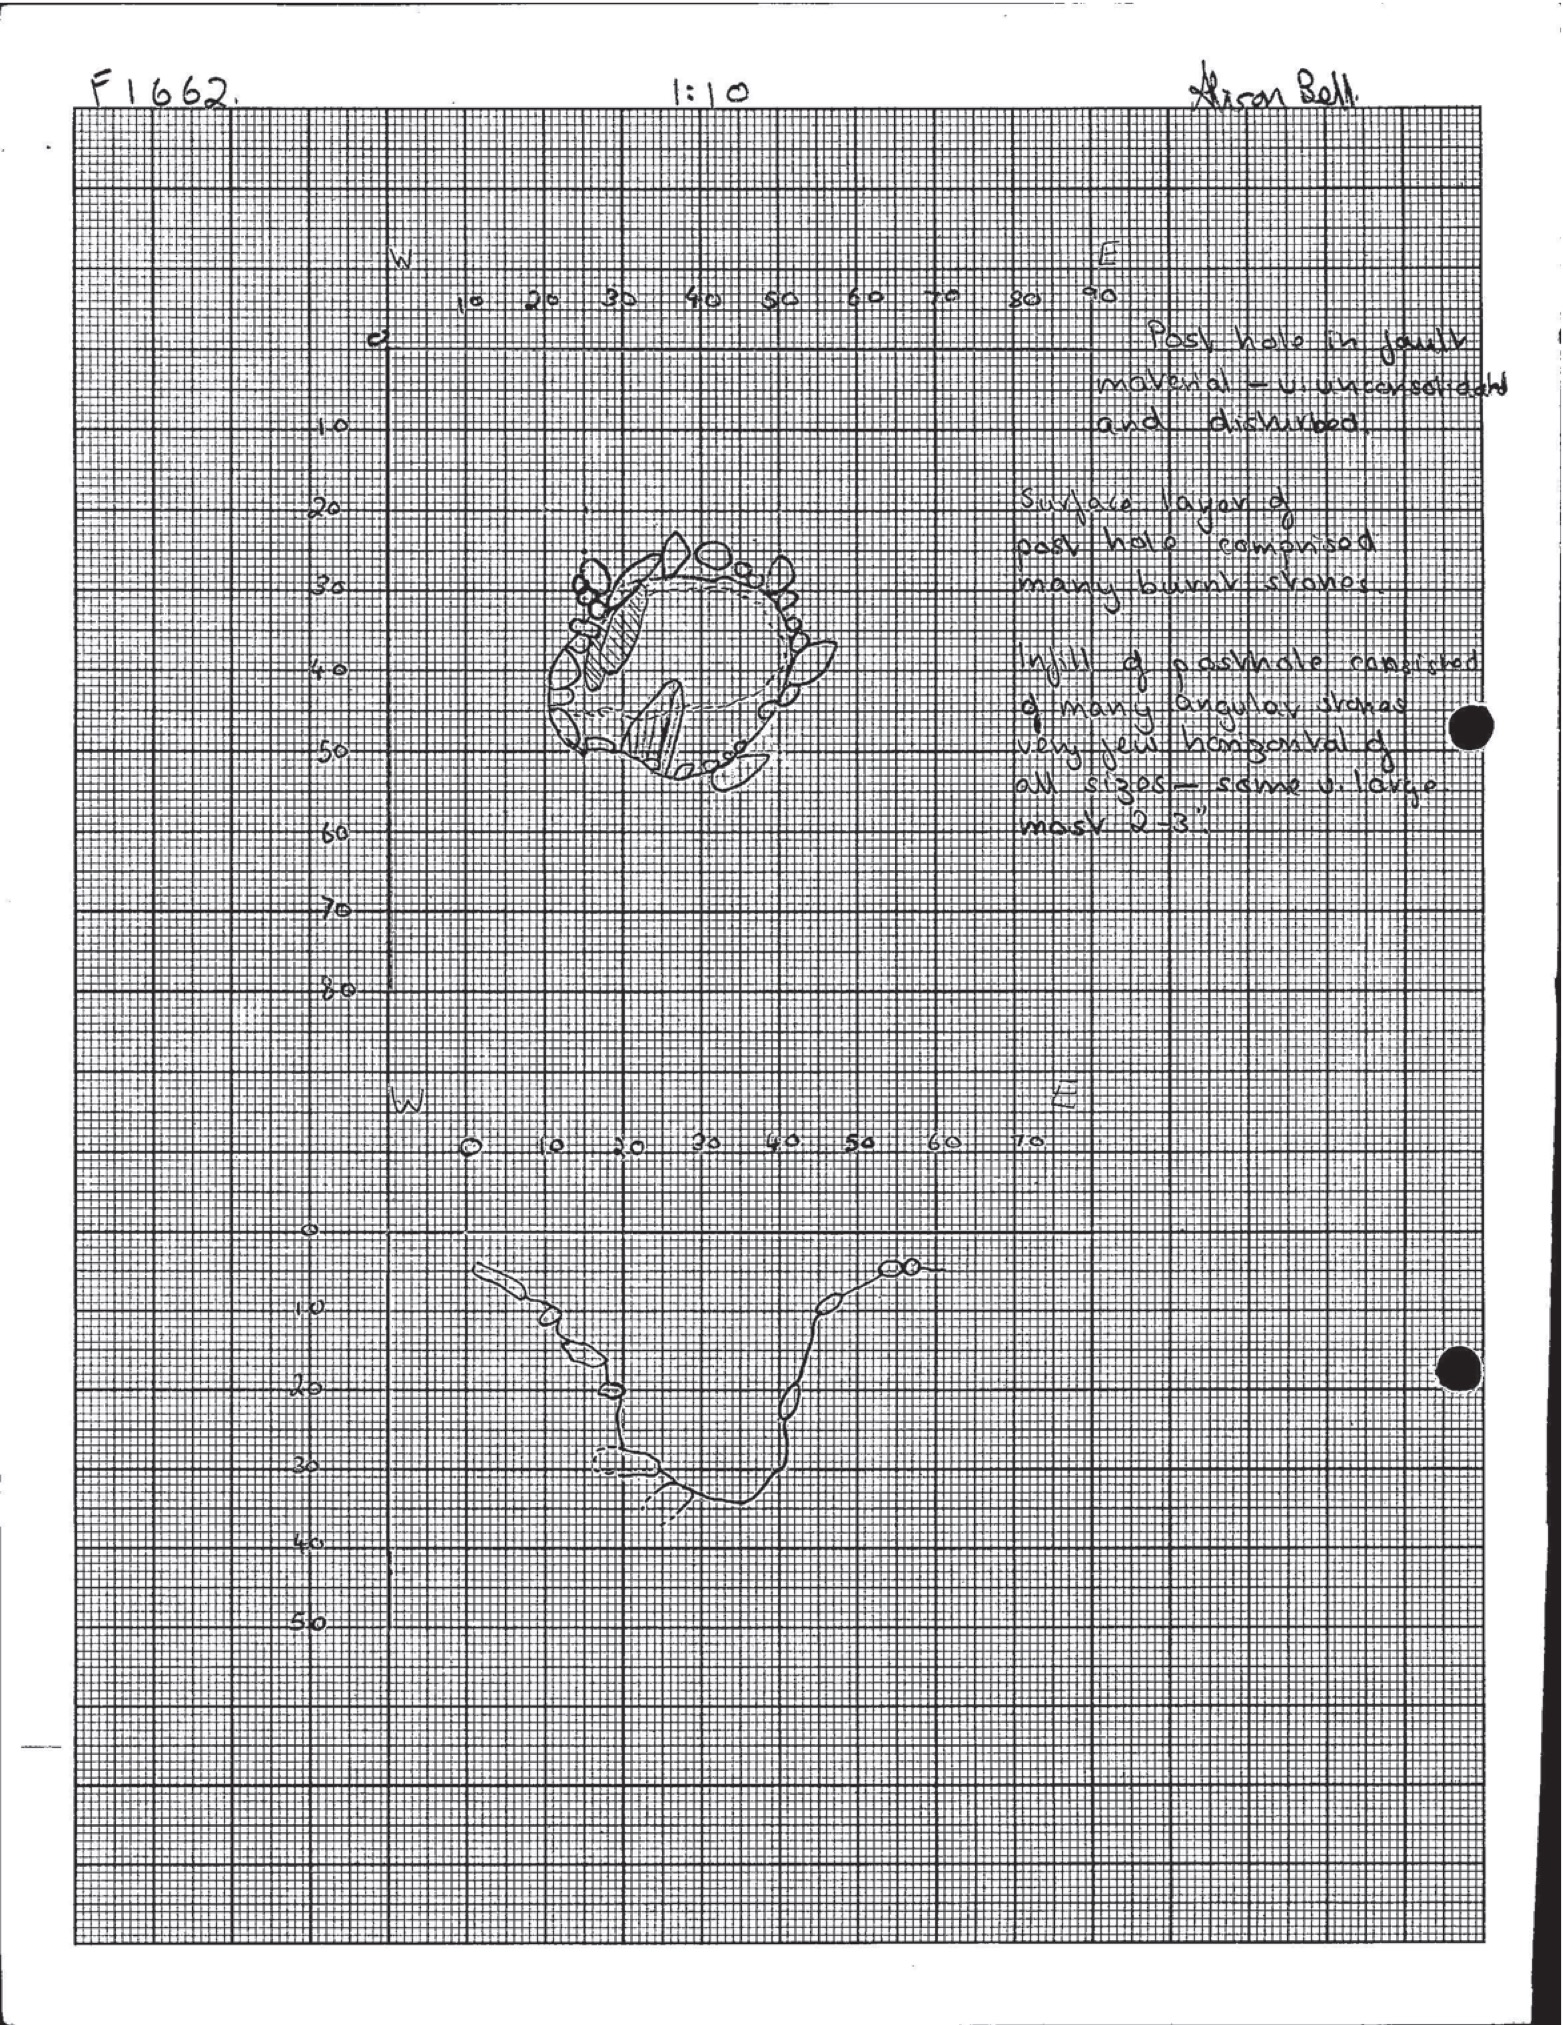 F1662. 1:10 Alison Bell.
W E
10 20 30 40 50 60 70 80 90
0
Post hole in fault
material - v. unconsolidated
and disturbed.
10
20
Surface layer of
post hole comprised
many burnt stones.
30
Infill of posthole consisted
40
of many angular stones
very few horizontal of
50
all sizes - some v. large
most 2-3".
60
70
80
W E
0 10 20 30 40 50 60 70
0
10
20
30
40
50